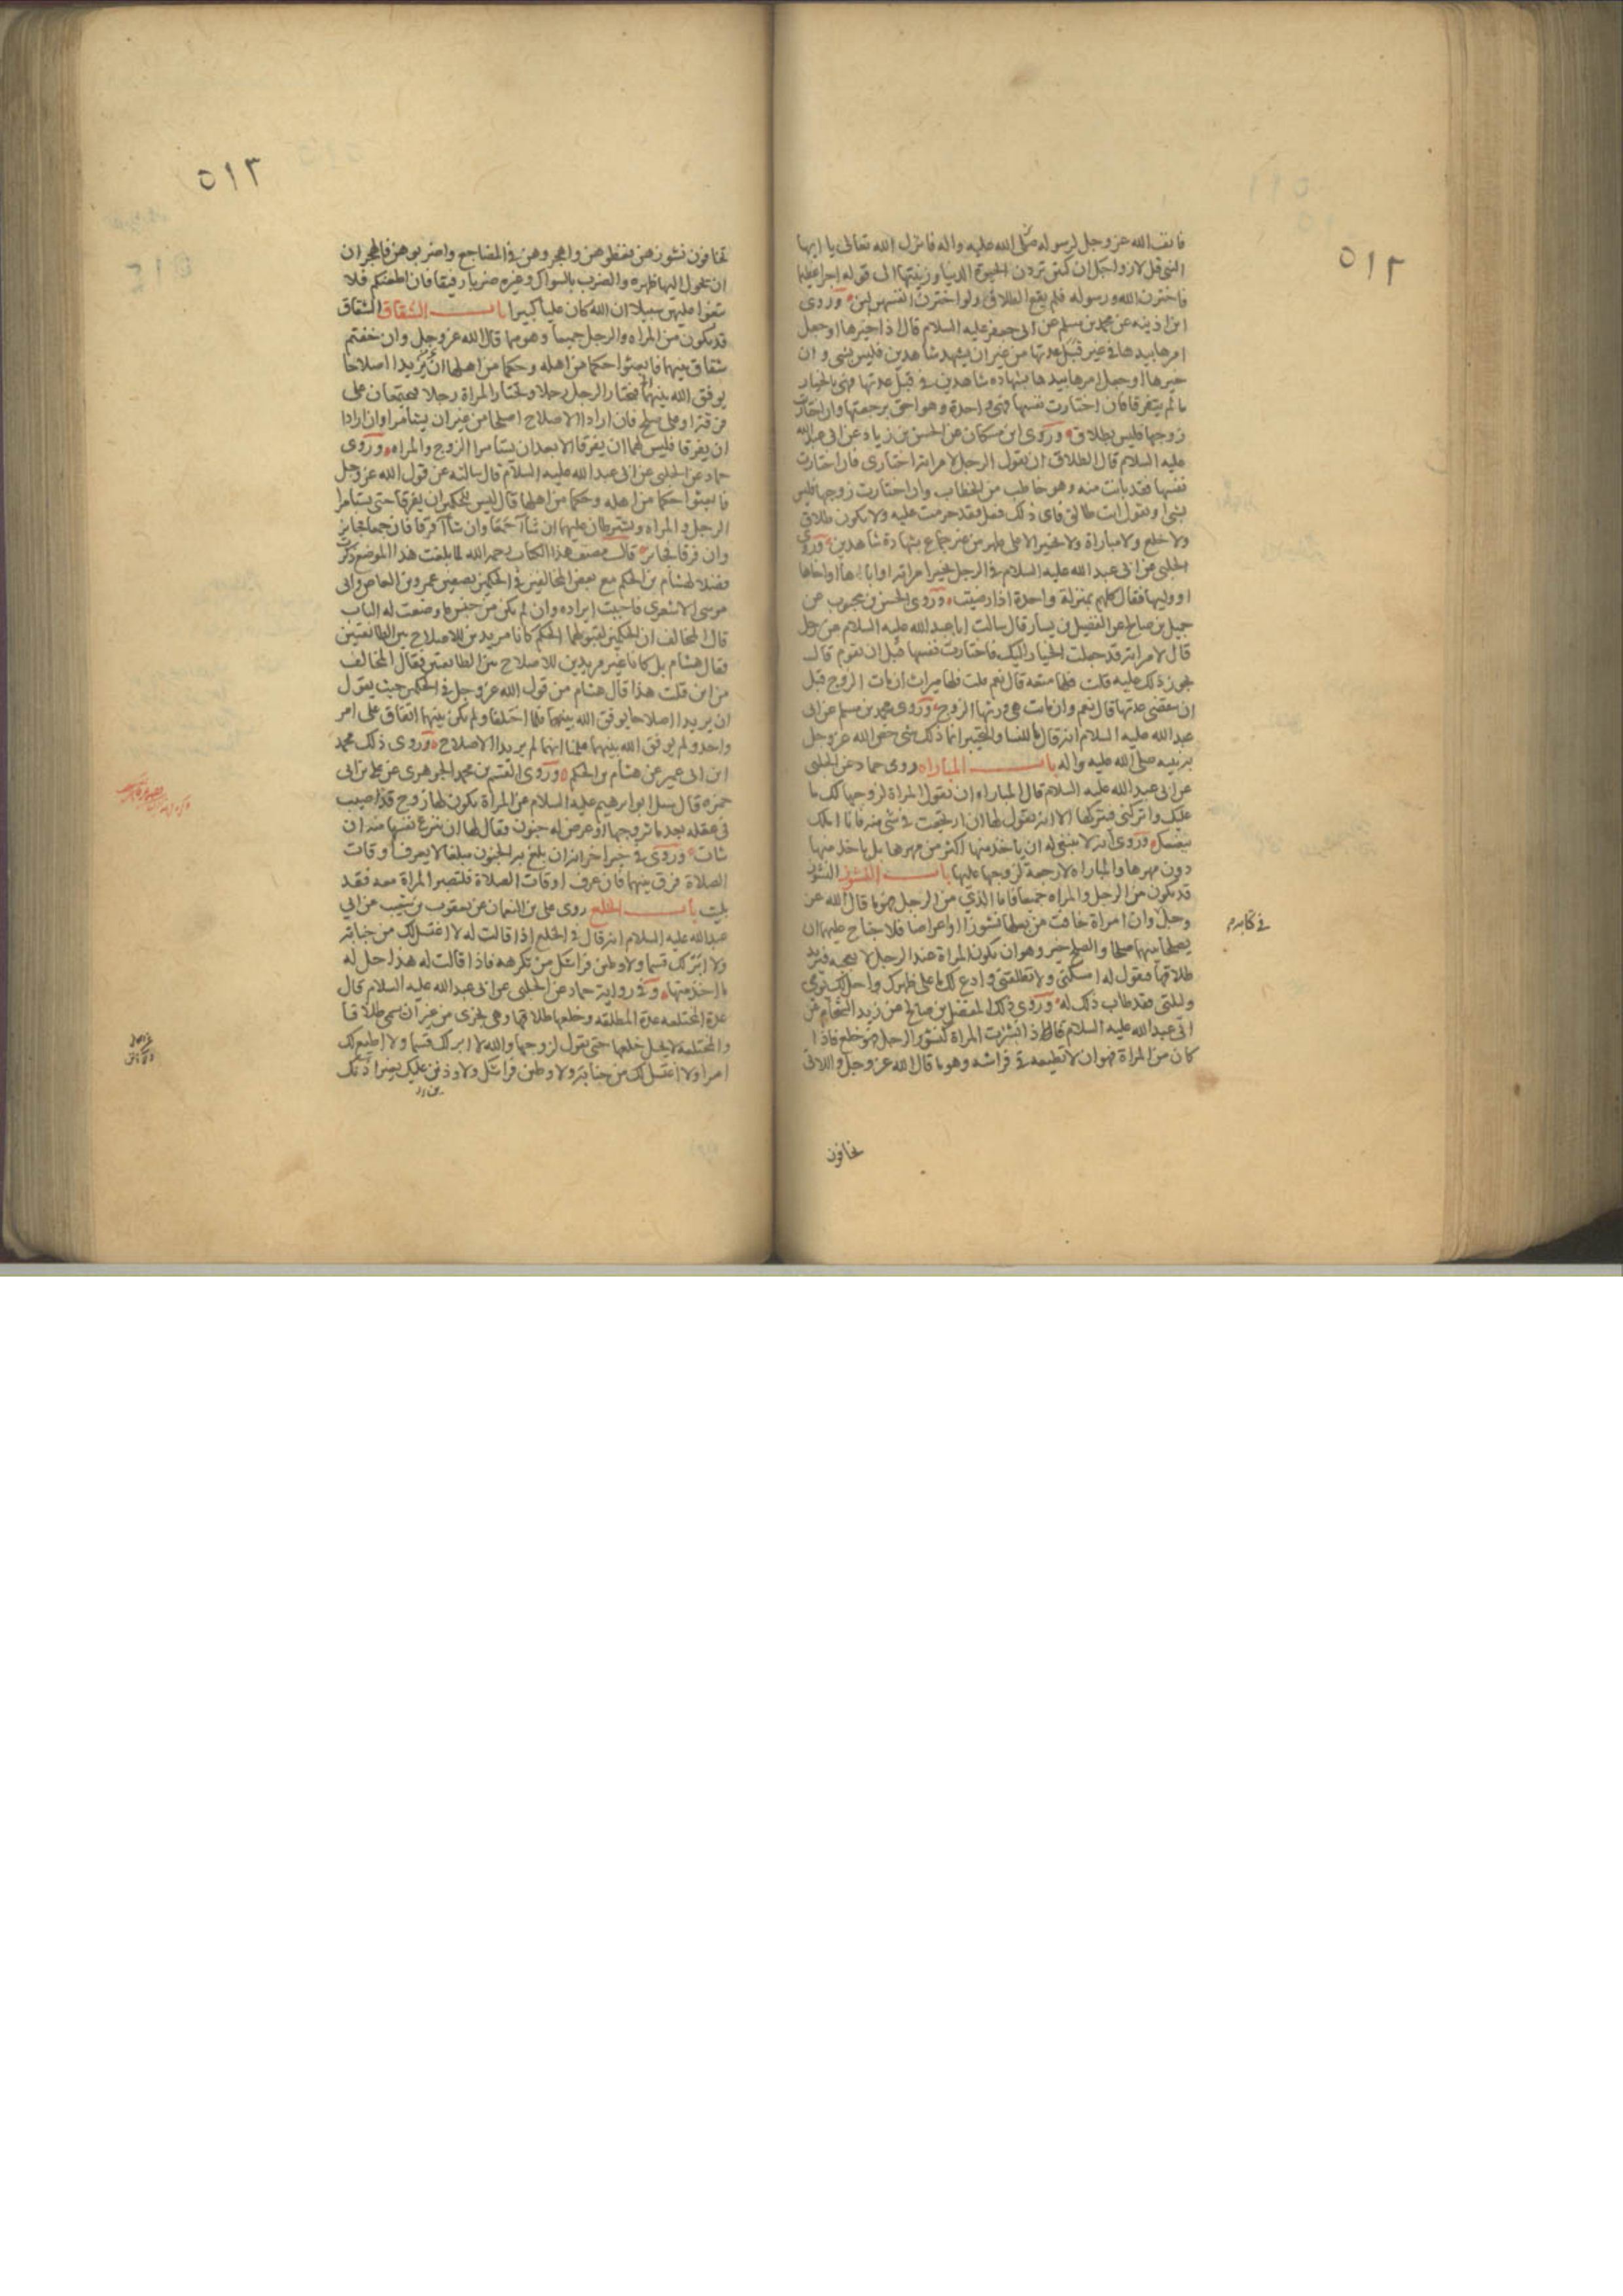 ٥١٢
فانف الله عز وجل لرسوله صلى الله عليه واله فانزل الله تعالى يا ايها
النبي قل لازواجك ان كنتن تردن الحيوة الدنيا وزينتها الى قوله اجرا عظيما
فاخترن الله ورسوله فلم يقع الطلاق ولو اخترن انفسهن لبن وروى
ابن اذينه عن محمد بن مسلم عن ابى جعفر عليه السلام قال اذا خيرها او جعل
امرها بيدها فى غير قبل عدتها من غير ان يشهد شاهدين فليس بشى وان
خيرها او جعل امرها بيدها بشهاده شاهدين فى قبل عدتها فهى بالخيار
ما لم يتفرقا فان اختارت نفسها فهى واحدة وهو احق برجعتها وان اختارت
زوجها فليس بطلاق وروى ابن مسكان عن الحسن بن زياد عن ابى عبد الله
عليه السلام قال الطلاق ان يقول الرجل لامراته اختارى فان اختارت
نفسها فقد بانت منه وهو خاطب من الخطاب وان اختارت زوجها فليس
بشى او يقول انت طالق فاى ذلك فعل فقد حرمت عليه ولا يكون طلاق
ولا خلع ولا مباراة ولا تخيير الا على طهر من غير جماع بشهادة شاهدين وروى
الحلبى عن ابى عبد الله عليه السلام فى الرجل يخير امراته او اباها او اخاها
او وليها فقال كلهم بمنزلة واحدة اذا رضيت وروى الحسن بن محبوب عن
جميل بن صالح عن الفضيل بن يسار قال سالت ابا عبد الله عليه السلام عن رجل
قال لامراته قد جعلت الخيار اليك فاختارت نفسها قبل ان تقوم قال
يجوز ذلك عليه قلت فلها متعه قال نعم قلت فلها ميراث ان مات الزوج قبل
ان تنقضى عدتها قال نعم وان ماتت هى ورثها الزوج وروى محمد بن مسلم عن ابى
عبد الله عليه السلام انه قال ما للنسا والتخيير انما ذلك شى خص الله عز وجل
به نبيه صلى الله عليه واله باب المباراه روى حماد عن الحلبى
عن ابى عبد الله عليه السلام قال المباراه ان تقول المراة لزوجها لك ما
عليك واتركنى فتركها الا انه يقول لها ان ارتجعت فى شى منه فانا املك
ببضعك وروى انه لا ينبغى له ان ياخذ منها اكثر من مهرها بل ياخذ منها
دون مهرها والمباراه لا رجعة لزوجها عليها باب النشوز النشوز
قد يكون من الرجل والمراه جميعا فاما الذى من الرجل فهو ما قال الله عز
وجل وان امراة خافت من بعلها نشوزا او اعراضا فلا جناح عليهما ان
فى كتابه
يصلحا بينهما صلحا والصلح خير وهو ان تكون المراة عند الرجل لا تعجبه فيريد
طلاقها فتقول له امسكنى ولا تطلقنى وادع لك ما على ظهرك واحل لك يومى
وليلتى فقد طاب ذلك له وروى ذلك المفضل بن صالح عن زيد الشحام عن
ابى عبد الله عليه السلام قال اذا نشزت المراة كنشوز الرجل فهو خلع فاذا
كان من المراة فهو ان لا تطيعه فى فراشه وهو ما قال الله عز وجل واللاتى
تخافون
٥١٣
تخافون نشوزهن فعظوهن واهجروهن فى المضاجع واضربوهن فالهجر ان
ان يحول اليها ظهره والضرب بالسواك وغيره ضربا رفيقا فان اطعنكم فلا
تبغوا عليهن سبيلا ان الله كان عليا كبيرا باب الشقاق الشقاق
قد يكون من المراه والرجل جميعا وهو مما قال الله عز وجل وان خفتم
شقاق بينهما فابعثوا حكما من اهله وحكما من اهلها ان يريدا اصلاحا
يوفق الله بينهما فيختار الرجل رجلا وتختار المراة رجلا فيجتمعان على
فرقة او على صلح فان ارادا الاصلاح اصلحا من غير ان يستامرا وان ارادا
ان يفرقا فليس لهما ان يفرقا الا بعد ان يستامرا الزوج والمراه وروى
حماد عن الحلبى عن ابى عبد الله عليه السلام قال سالته عن قول الله عز وجل
فابعثوا حكما من اهله وحكما من اهلها قال ليس للحكمين ان يفرقا حتى يستامرا
الرجل والمراه ويشترطان عليهما ان شاآ جمعا وان شاآ فرقا فان جمعا فجايز
وان فرقا فجايز قال مصنف هذا الكتاب رحمه الله لما بلغت هذا الموضع ذكرت
فضلا لهشام بن الحكم مع بعض المخالفين فى الحكمين بصفين عمرو بن العاص وابى
موسى الاشعرى فاحببت ايراده وان لم يكن من جنس ما وضعت له الباب
قال المخالف ان الحكمين لقبولهما الحكم كانا مريدين للاصلاح بين الطائفتين
فقال هشام بل كانا غير مريدين للاصلاح بين الطايفتين فقال المخالف
من اين قلت هذا قال هشام من قول الله عز وجل فى الحكمين حيث يقول
ان يريدا اصلاحا يوفق الله بينهما فلما اختلفا ولم يكن بينهما اتفاق على امر
واحد ولم يوفق الله بينهما علمنا انهما لم يريدا الاصلاح وروى ذلك محمد
ابن ابى عمير عن هشام بن الحكم وروى القسم بن محمد الجوهرى عن على بن ابى
حمزه قال سئل ابو ابرهيم عليه السلام عن المراة يكون لها زوج قد اصيب
فى عقله بعد ما تزوجها او عرض له جنون فقال لها ان تنزع نفسها منه ان
شات وروى فى خبر اخر انه ان بلغ به الجنون مبلغا لا يعرف اوقات
الصلاة فرق بينهما فان عرف اوقات الصلاة فلتصبر المراة معه فقد
بليت باب الخلع روى على بن النعمان عن يعقوب بن شعيب عن ابى
عبد الله عليه السلام انه قال فى الخلع اذا قالت له لا اغتسل لك من جنابة
ولا ابر لك قسما ولاوطين فراشك من تكرهه فاذا قالت له هذا حل له
ما اخذ منها وفى رواية حماد عن الحلبى عن ابى عبد الله عليه السلام قال
عدة المختلعه عدة المطلقه وخلعها طلاقها وهى تجزى من غير ان يسمى طلاقا
والمختلعة لا يحل خلعها حتى تقول لزوجها والله لا ابر لك قسما ولا اطيع لك
امرا ولا اغتسل لك من جنابة ولاوطين فراشك ولاوذنن عليك بغير اذنك